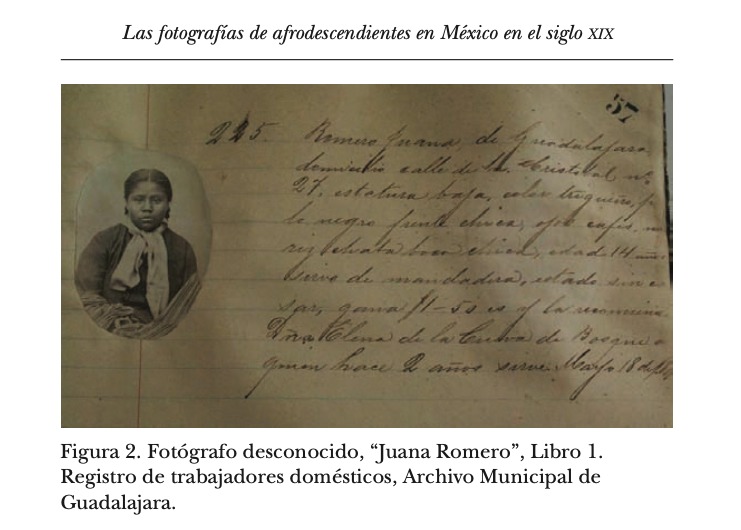 Las fotografías de afrodescendientes en México en el siglo XIX
57
225. Romero Juana, de Guadalajara,
domicilio calle de Sn. Cristobal nº
27, estatura baja, color trigueño, pe
lo negro frente chica, ojos cafés, na
riz chata boca chica, edad 14 años
sirve de mandadera, estado sin ca
sar, gana $1-50 es y la recomienda
Dña Elena de la Cueva de Bosque a
quien hace 2 años sirve. Mayo 18 de
Figura 2. Fotógrafo desconocido, “Juana Romero”, Libro 1.
Registro de trabajadores domésticos, Archivo Municipal de
Guadalajara.